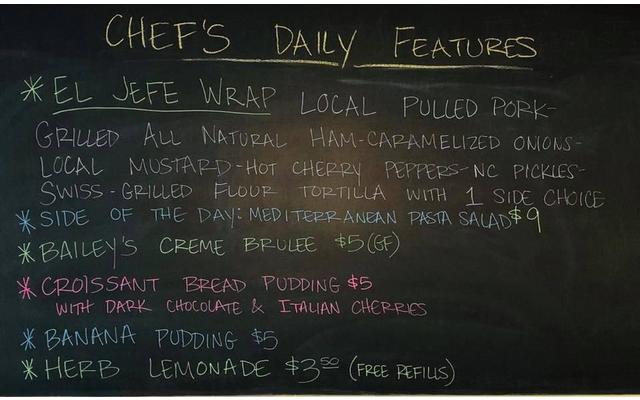 CHEF'S DAILY FEATURES
* EL JEFE WRAP LOCAL PULLED PORK-
GRILLED ALL NATURAL HAM-CARAMELIZED ONIONS-
LOCAL MUSTARD-HOT CHERRY PEPPERS-NC PICKLES-
SWISS-GRILLED FLOUR TORTILLA WITH 1 SIDE CHOICE
* SIDE OF THE DAY: MEDITERRANEAN PASTA SALAD $9
* BAILEY'S CREME BRULEE $5 (GF)
* CROISSANT BREAD PUDDING $5
WITH DARK CHOCOLATE & ITALIAN CHERRIES
* BANANA PUDDING $5
* HERB LEMONADE $3.50 (FREE REFILLS)